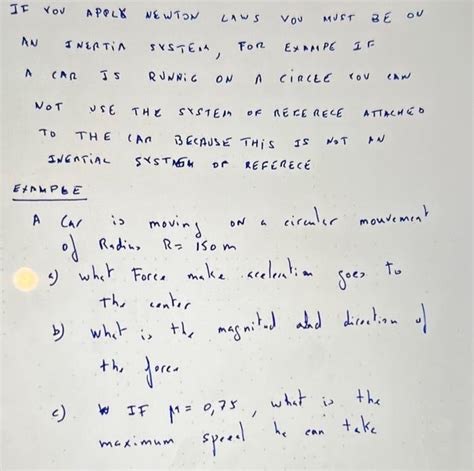 IF YOU APPLY NEWTON LAWS YOU MUST BE ON
AN INERTIA SYSTEM, FOR EXAMPE IF
A CAR IS RUNNIG ON A CIRCLE YOU CAN
NOT USE THE SYSTEM OF REFERECE ATTACHED
TO THE CAR BECAUSE THIS IS NOT AN
INERTIAL SYSTEM OF REFERECE
EXAMPLE
A Car is moving ON a circular mouvement
of Radius R = 150 m
a) what Force make aceleration goes to
the center
b) what is the magnitud and direction of
the force
c) IF μ = 0,75, what is the
maximum speed he can take